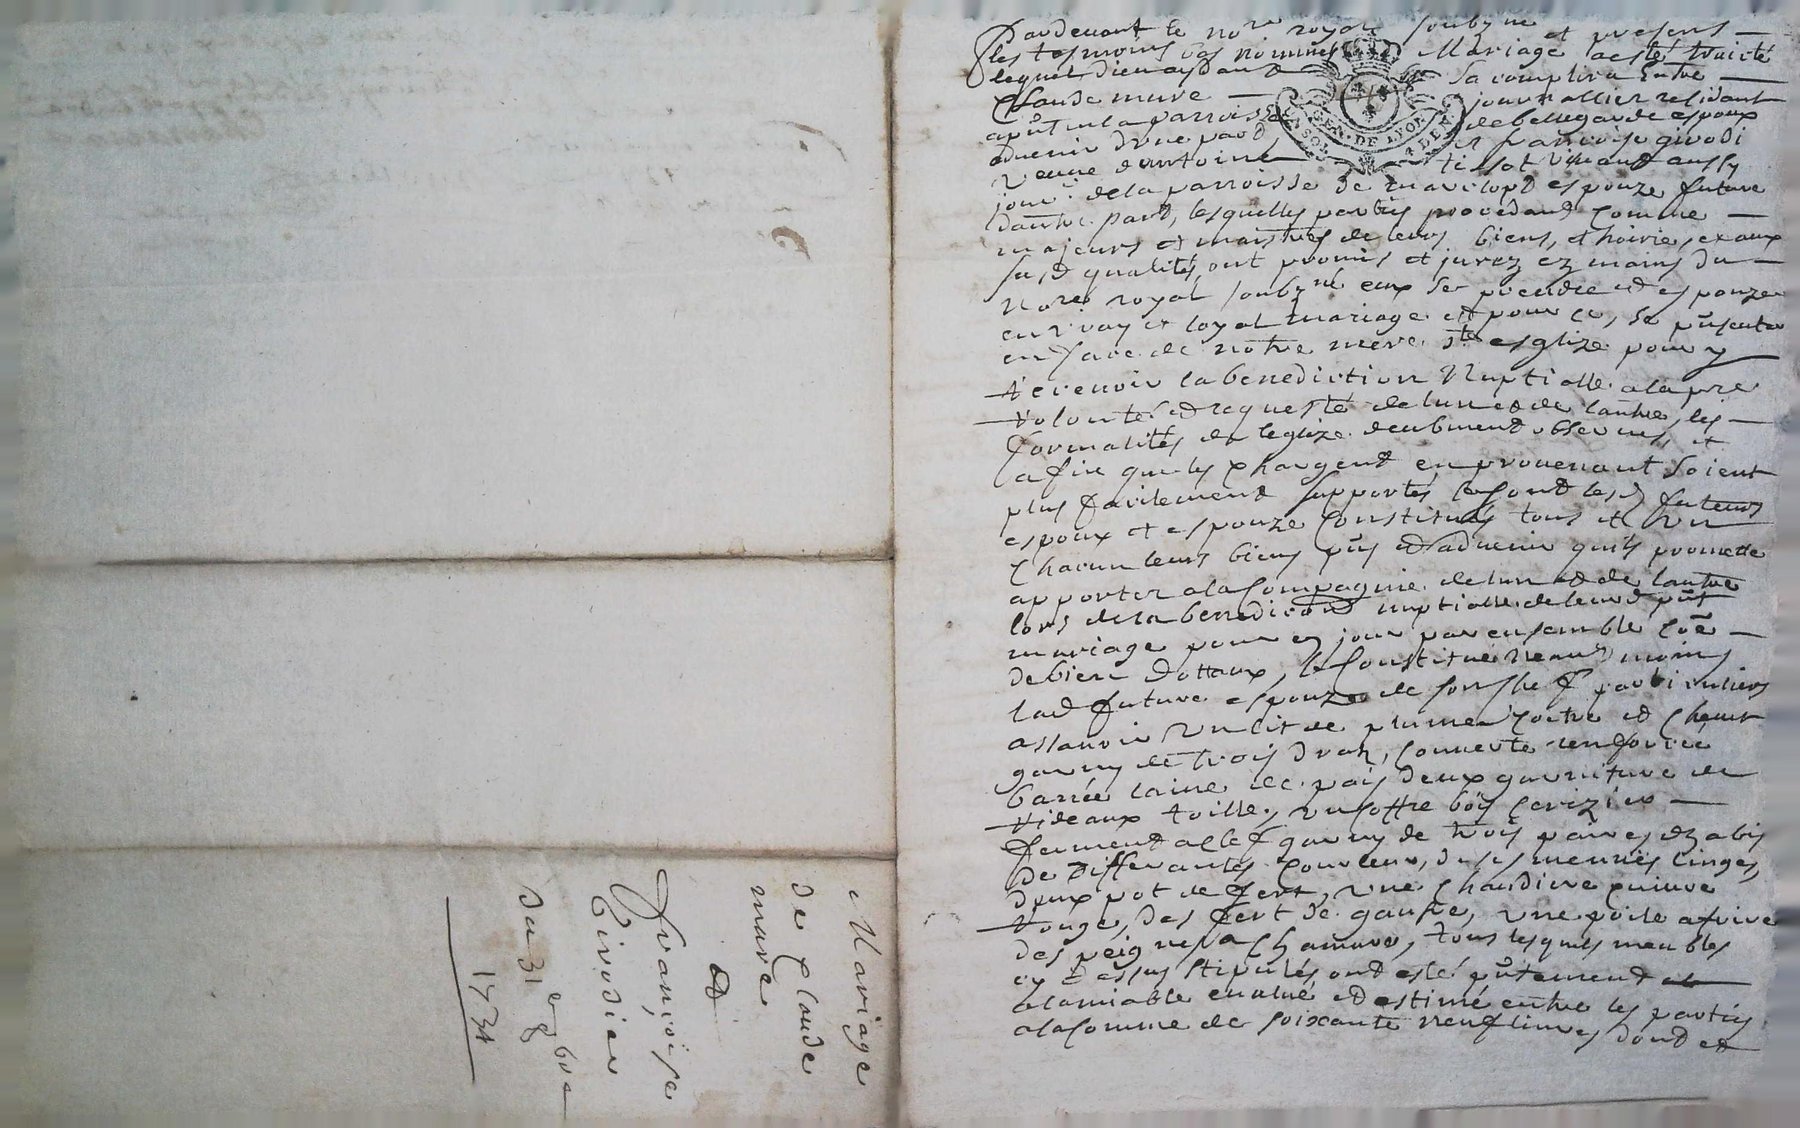 Mariage
de Claude
mure
et
Françoise
Girodier
du 31 8bre
1734
Pardevant le nore royal soubzne et presens
les tesmoins bas nommés Mariage aesté traicté
lequel dieu aydant Sacomplira Entre
Claude mure journallier residant
apñt en la parroisse de bellegarde espoux
aduenir dune part, et francoise girodi
veuve dantoine tissot vivant aussy
jour. dela parroisse de mavilopt espouze future
dautre part, lesquelles parties procedant comme
majeurs et maistres de leurs biens, et hoirie, et aux
susd qualités, ont promis et jurez ez mains du
nore royal soubzne eux se prendre et espouzer
en vray et loyal mariage et pour ce, se pñsenter
en face de notre mere ste esglize pour y
recevoir la benediction Nuptialle a la pre
volonté et requeste de lun et de lautre, les
formalités de leglize deubment observées, et
afin que les chargent en provenant soient
plus facilement supportés se sont lesd futeurs
espoux et espouze constitués tous et un
chacun leurs biens pñs et aduenir quils promette
apporter a la compagnie de lun et de lautre
lors de la benediction nuptialle de leurd pñt
mariage pour en jouir par ensemble coe
de bien dottaux, se constitue neaud moins
lad future espouze de son chef particuliers
assavoir un lit de plume coitre et chevet
garny de trois drap, couverte renforcee
barrée laine de païs deux garniture de
rideaux toille, un coffre bois cerizier
ferment a clef garny de trois paires dhabis
de differantes couleur, de ses menües linges,
deux pot de fert, une chaudiere cuivre
rouge, des fert de gaufre, une poile a frire
des peignes a chanvre, tous lesquels meubles
cy dessus stipulés ont esté pñtement
a lamiable evalué et estimé entre les parties
a la somme de soixante neuf livres dont et
GEN. DE LYON